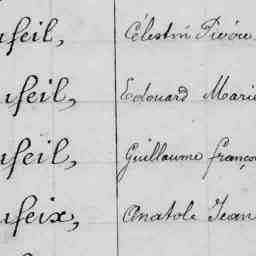 ufeil, Célestin Pivou
ufeil, Edouard Marie
ufeil, Guillaume françoi
ufeix, Anatole Jean